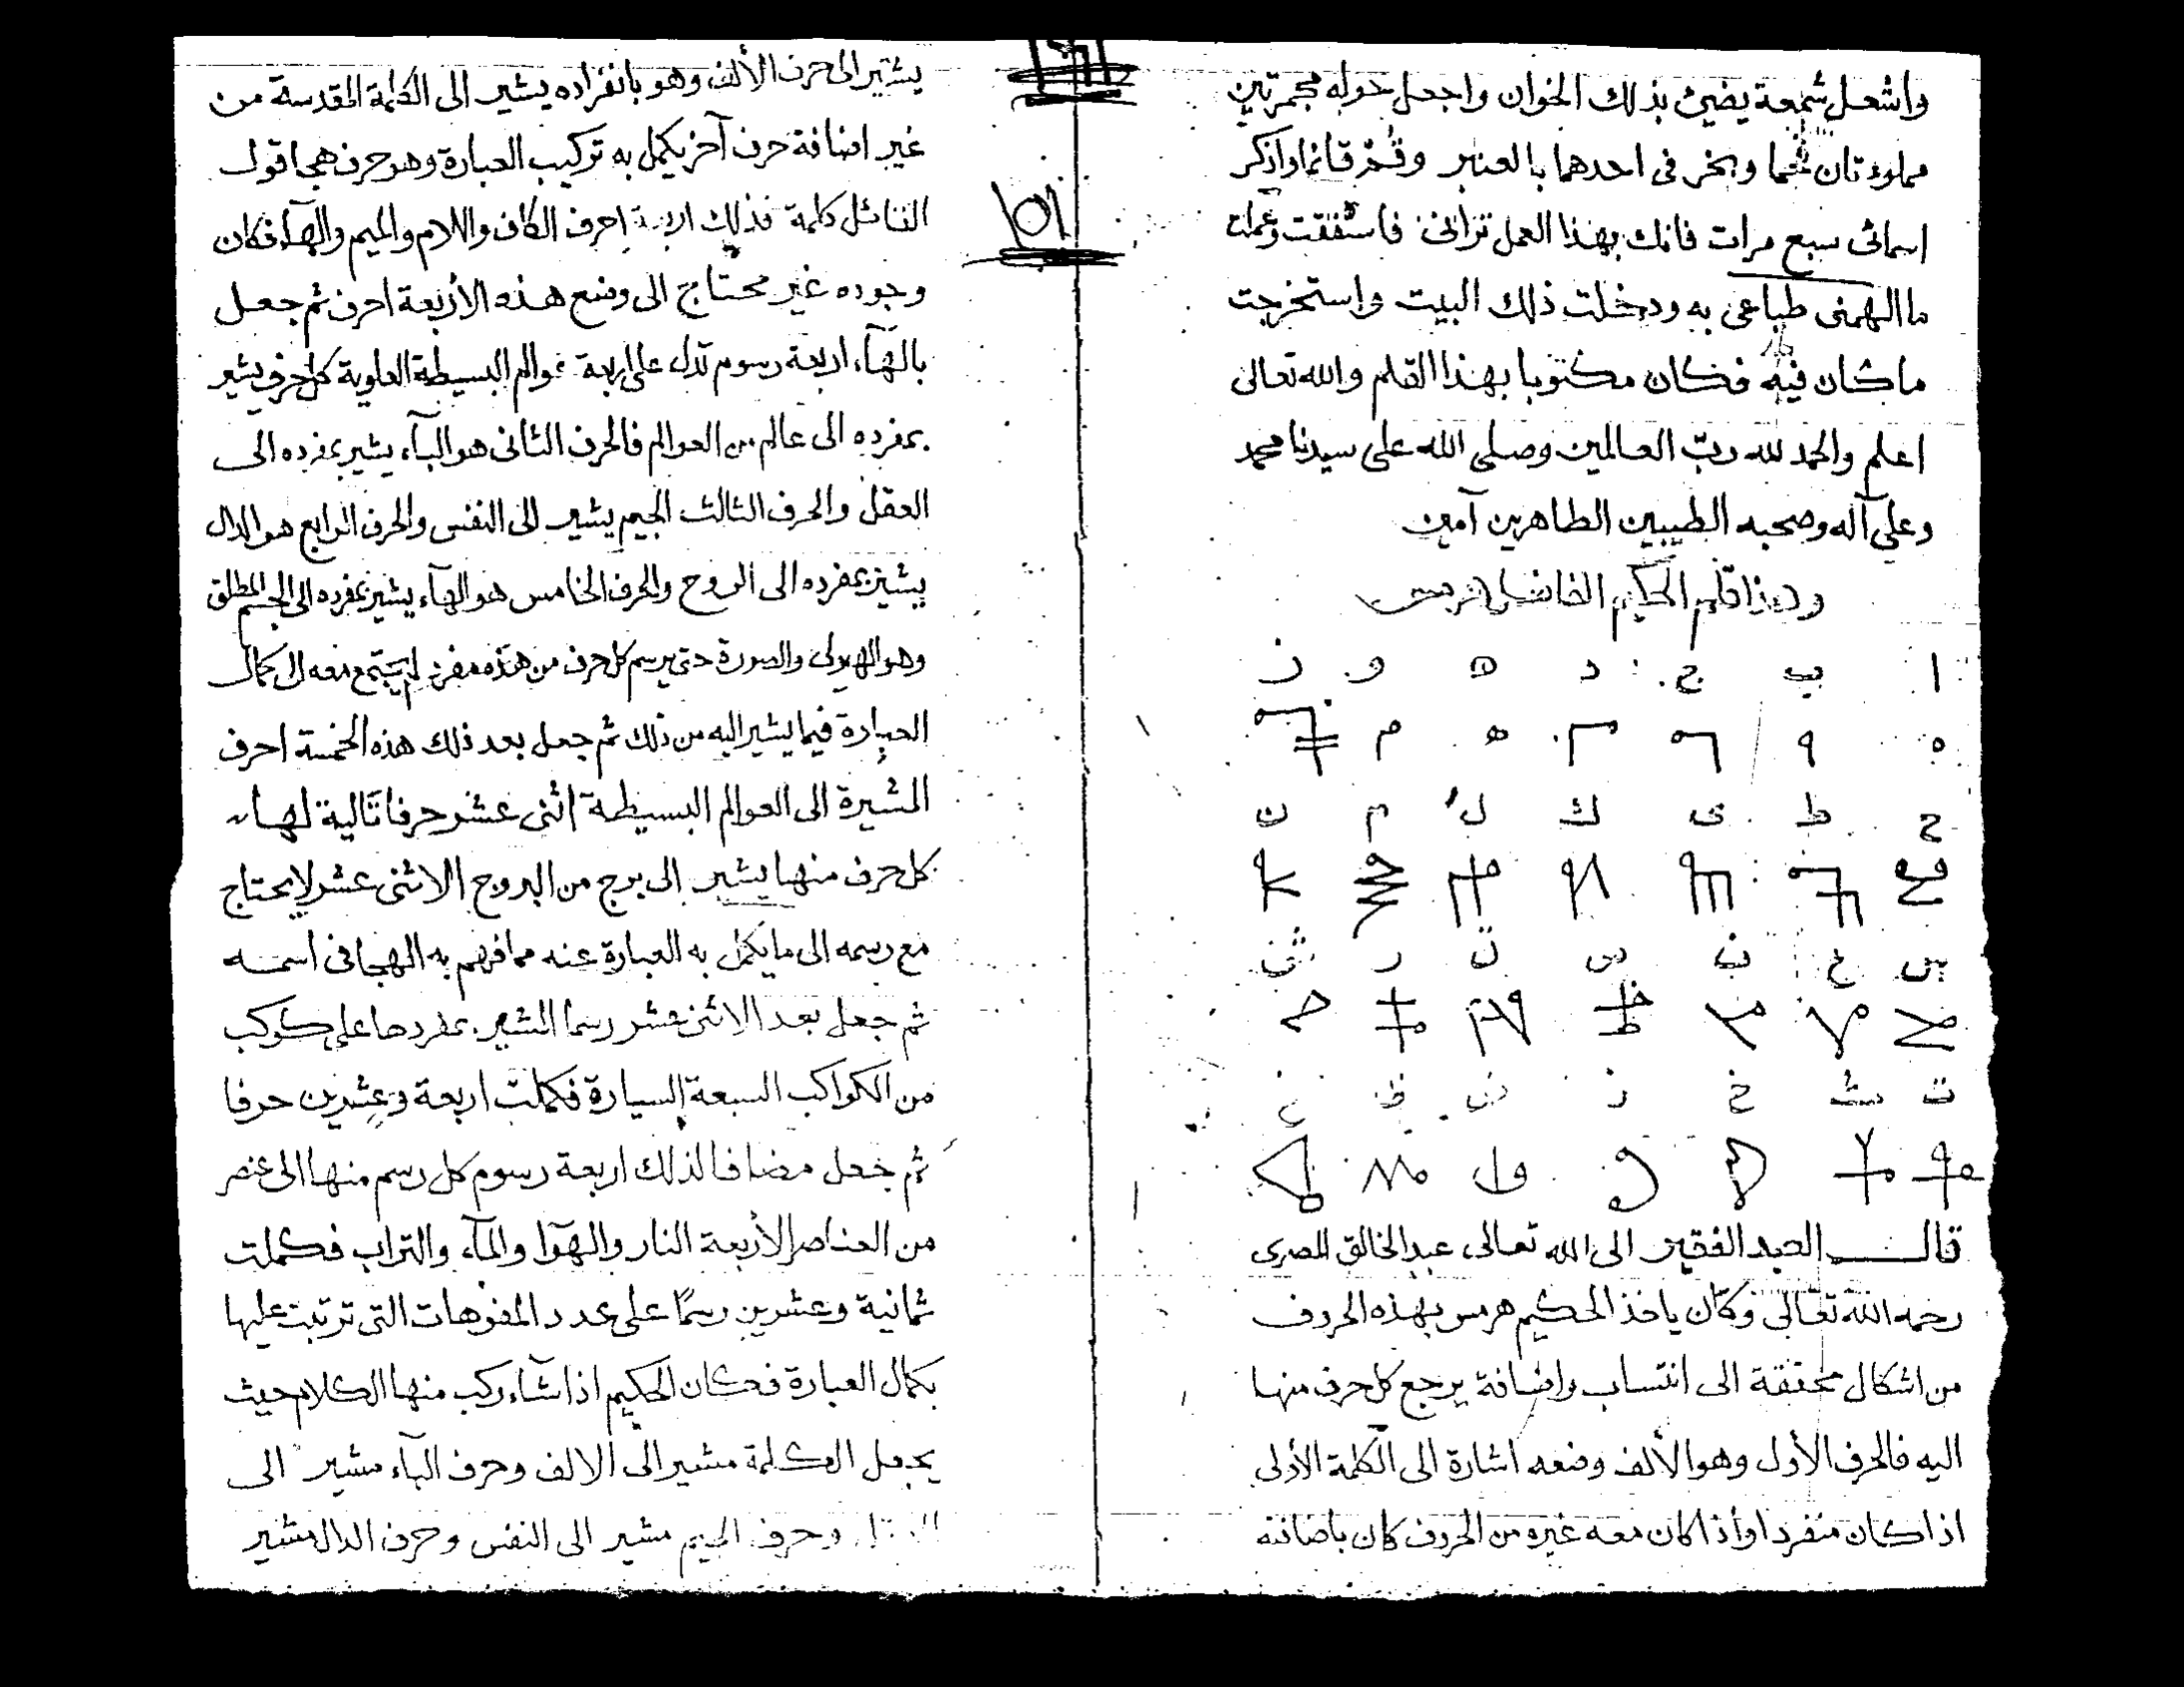 واشعل شمعة يضئ بذلك الخوان واجعل حوله مجمرتين
مملوءتان فحما وبخر فى احدهما بالعنبر وقم قائما واذكر
اسمائى سبع مرات فانك بهذا العمل ترانى فاستفقت وعملت
ما الهمنى طباعى به ودخلت ذلك البيت واستخرجت
ما كان فيه فكان مكتوبا بهذا القلم والله تعالى
اعلم والحمد لله ربّ العالمين وصلى الله على سيدنا محمد
وعلى آله وصحبه الطيبين الطاهرين آمين
وهذا قلم الحكيم الفاضل هرمس
ا ب ج د ه و ز
ح ط ى ك ل م ن
س ع ف ص ق ر ش
ت ث خ ذ ض ظ غ
قال العبد الفقير الى الله تعالى عبد الخالق المصرى
رحمه الله تعالى وكان ياخذ الحكيم هرمس بهذه الحروف
من اشكال محققة الى انتساب واضافة يرجع كل حرف منها
اليه فالحرف الأول وهو الألف وضعه اشارة الى الكلمة الأولى
اذا كان منفردا وأذا كان معه غيره من الحروف كان باضافته
يشير الى حرف الألف وهو بانفراده يشير الى الكلمة المقدسة من
غير اضافة حرف آخر يكمل به تركيب العبارة وهو حرف هجا قول
القائل كلمة فذلك اربعة احرف الكاف واللام والميم والهآء فكان
وجوده غير محتاج الى وضع هذه الأربعة احرف ثم جعل
بالهآء اربعة رسوم تدل على اربعة عوالم البسيطة العلوية كل حرف يشير
بمفرده الى عالم من العوالم فالحرف الثانى هو البآء يشير بمفرده الى
العقل والحرف الثالث الجيم يشير الى النفس والحرف الرابع هو الدال
يشير بمفرده الى الروح والحرف الخامس هو الهآء يشير بمفرده الى الجسم المطلق
وهو الهيولى والصورة حتى يرسم كل حرف من هذه مفرد لم يجتمع معه الى كمال
العبارة فيما يشير اليه من ذلك ثم جعل بعد ذلك هذه الخمسة احرف
المشيرة الى العوالم البسيطة اثنى عشر حرفا تالية لها
كل حرف منها يشير الى برج من البروج الاثنى عشر لا يحتاج
مع رسمه الى ما يكمل به العبارة عنه مما فهم به الهجا فى اسمه
ثم جعل بعد الاثنى عشر رسما المشير بمفردها على كوكب
من الكواكب السبعة السيارة فكملت اربعة وعشرين حرفا
ثم جعل مضافا لذلك اربعة رسوم كل رسم منها الى عنصر
من العناصر الأربعة النار والهوا والمآء والتراب فكملت
ثمانية وعشرين رسمًا على عدد المفوهات التى ترتبت عليها
بكمال العبارة فكان الحكيم اذا شاء ركب منها الكلام حيث
يجعل الكلمة مشير الى الالف وحرف البآء مشير الى
وحرف الجيم مشير الى النفس وحرف الدال مشير